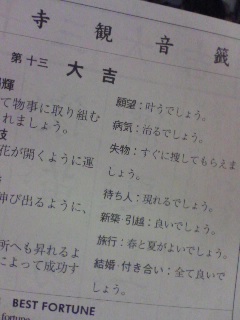 寺観音籤
第十三 大吉
輝
て物事に取り組む
れましょう。
技
花が開くように運
伸び出るように、
所へも昇れるよ
によって成功す
願望：叶うでしょう。
病気：治るでしょう。
失物：すぐに捜してもらえま
しょう。
待ち人：現れるでしょう。
新築・引越：良いでしょう。
旅行：春と夏がよいでしょう。
結婚・付き合い：全て良いで
しょう。
BEST FORTUNE